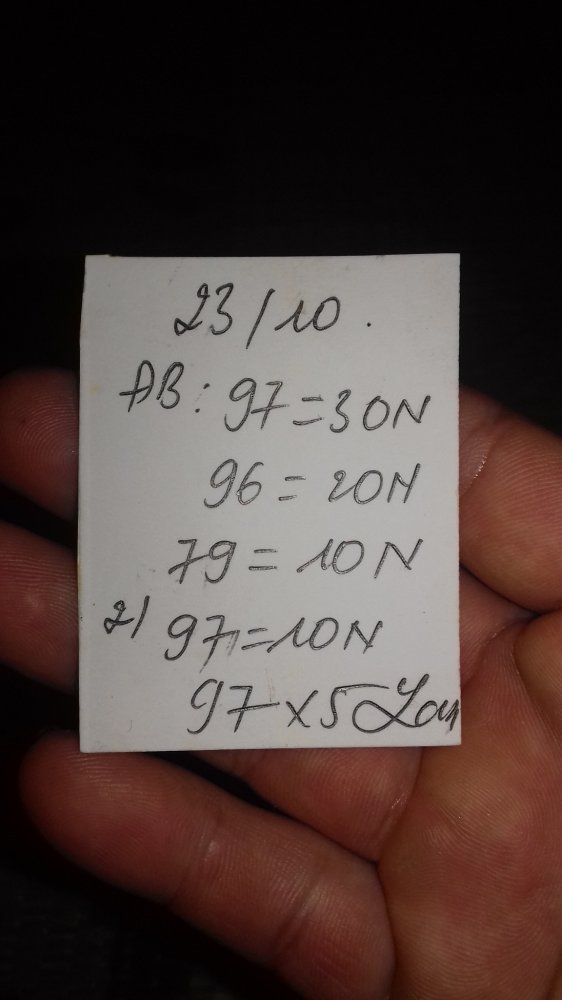 23/10.
AB: 97=30N
96=20N
79=10N
2/ 97=10N
97x5 Lan